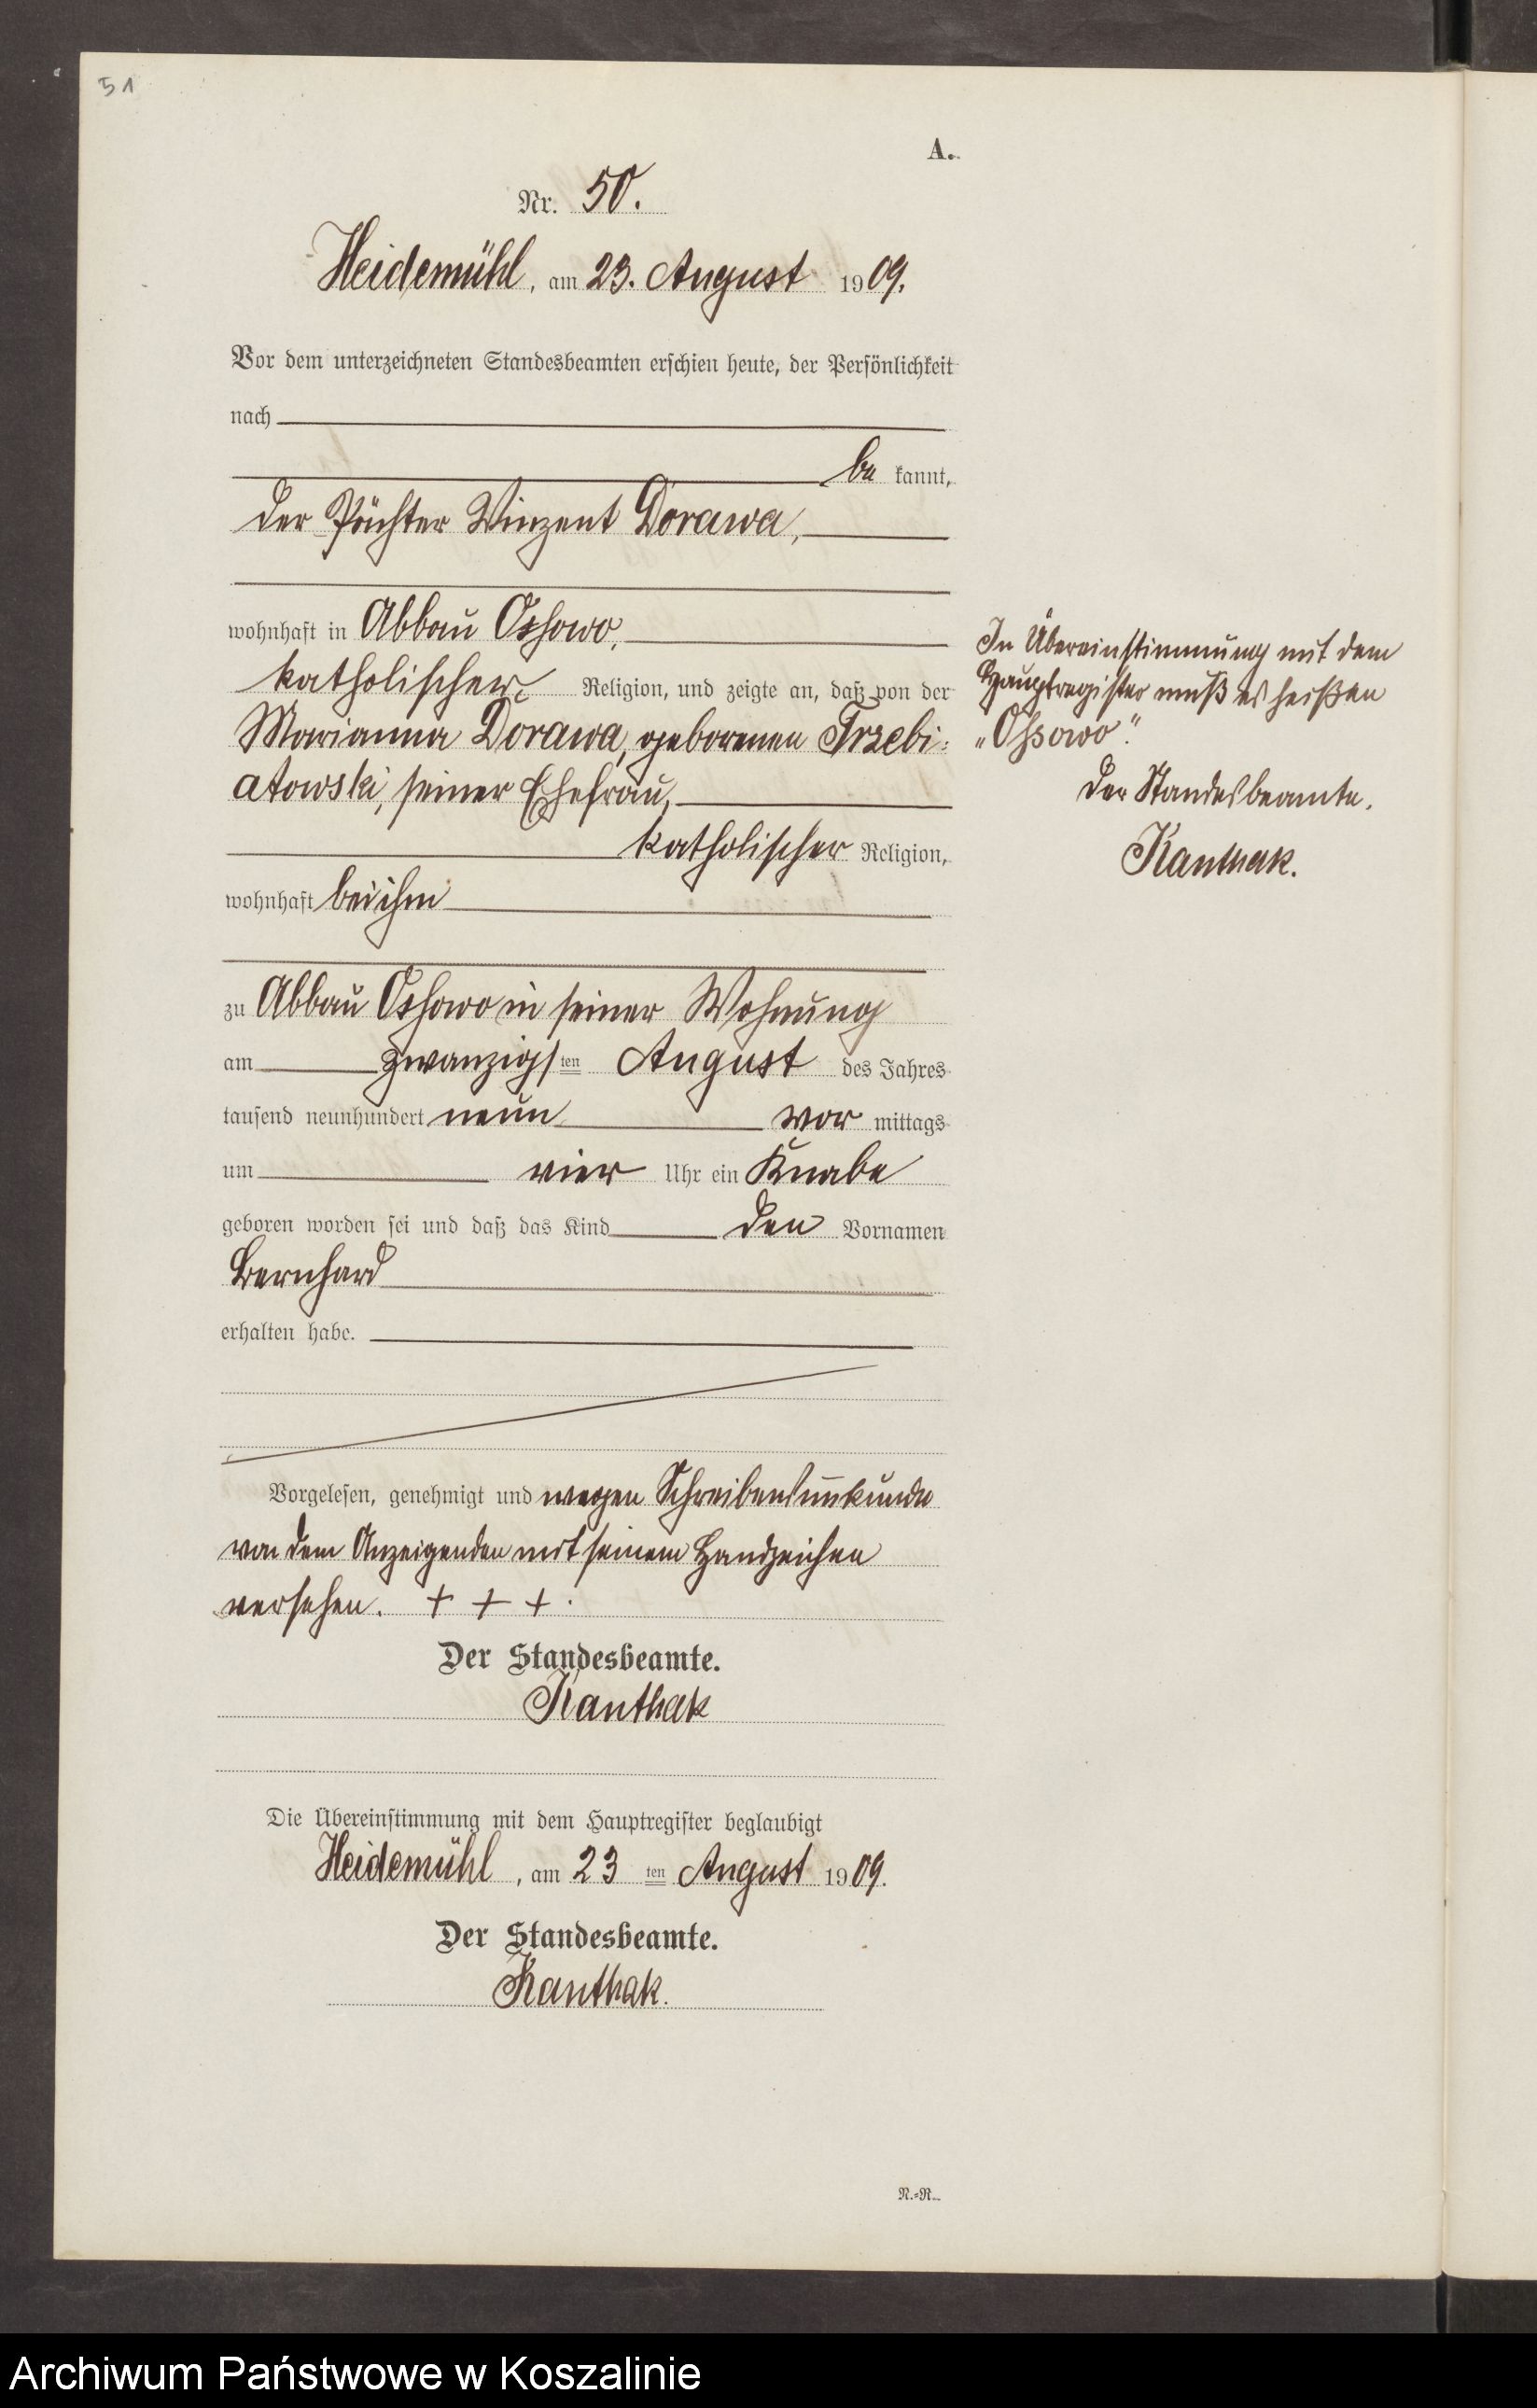 51
A.
Nr. 50.
Heidemühl, am 23. August 1909.
Vor dem unterzeichneten Standesbeamten erschien heute, der Persönlichkeit
nach
be kannt,
der Pächter Vinzent Dorawa,
wohnhaft in Abbau Oshowo,
katholischer, Religion, und zeigte an, daß von der
Marianna Dorawa, geborenen Trzebi-
atowski, seiner Ehefrau,
katholischer Religion,
wohnhaft bei ihm
zu Abbau Oshowo in seiner Wohnung
am zwanzigsten August des Jahres
tausend neunhundert neun vor mittags
um vier Uhr ein Knabe
geboren worden sei und daß das Kind den Vornamen
Bernhard
erhalten habe.
Vorgelesen, genehmigt und wegen Schreibensunkunde
von dem Anzeigenden mit seinem Handzeichen
versehen. + + + .
Der Standesbeamte.
Kanthak
Die Übereinstimmung mit dem Hauptregister beglaubigt
Heidemühl, am 23 ten August 1909.
Der Standesbeamte.
Kanthak.
N.=R.
In Übereinstimmung mit dem
Hauptregister muß es heißen
„Ossowo".
Der Standesbeamte.
Kanthak.
Archiwum Państwowe w Koszalinie